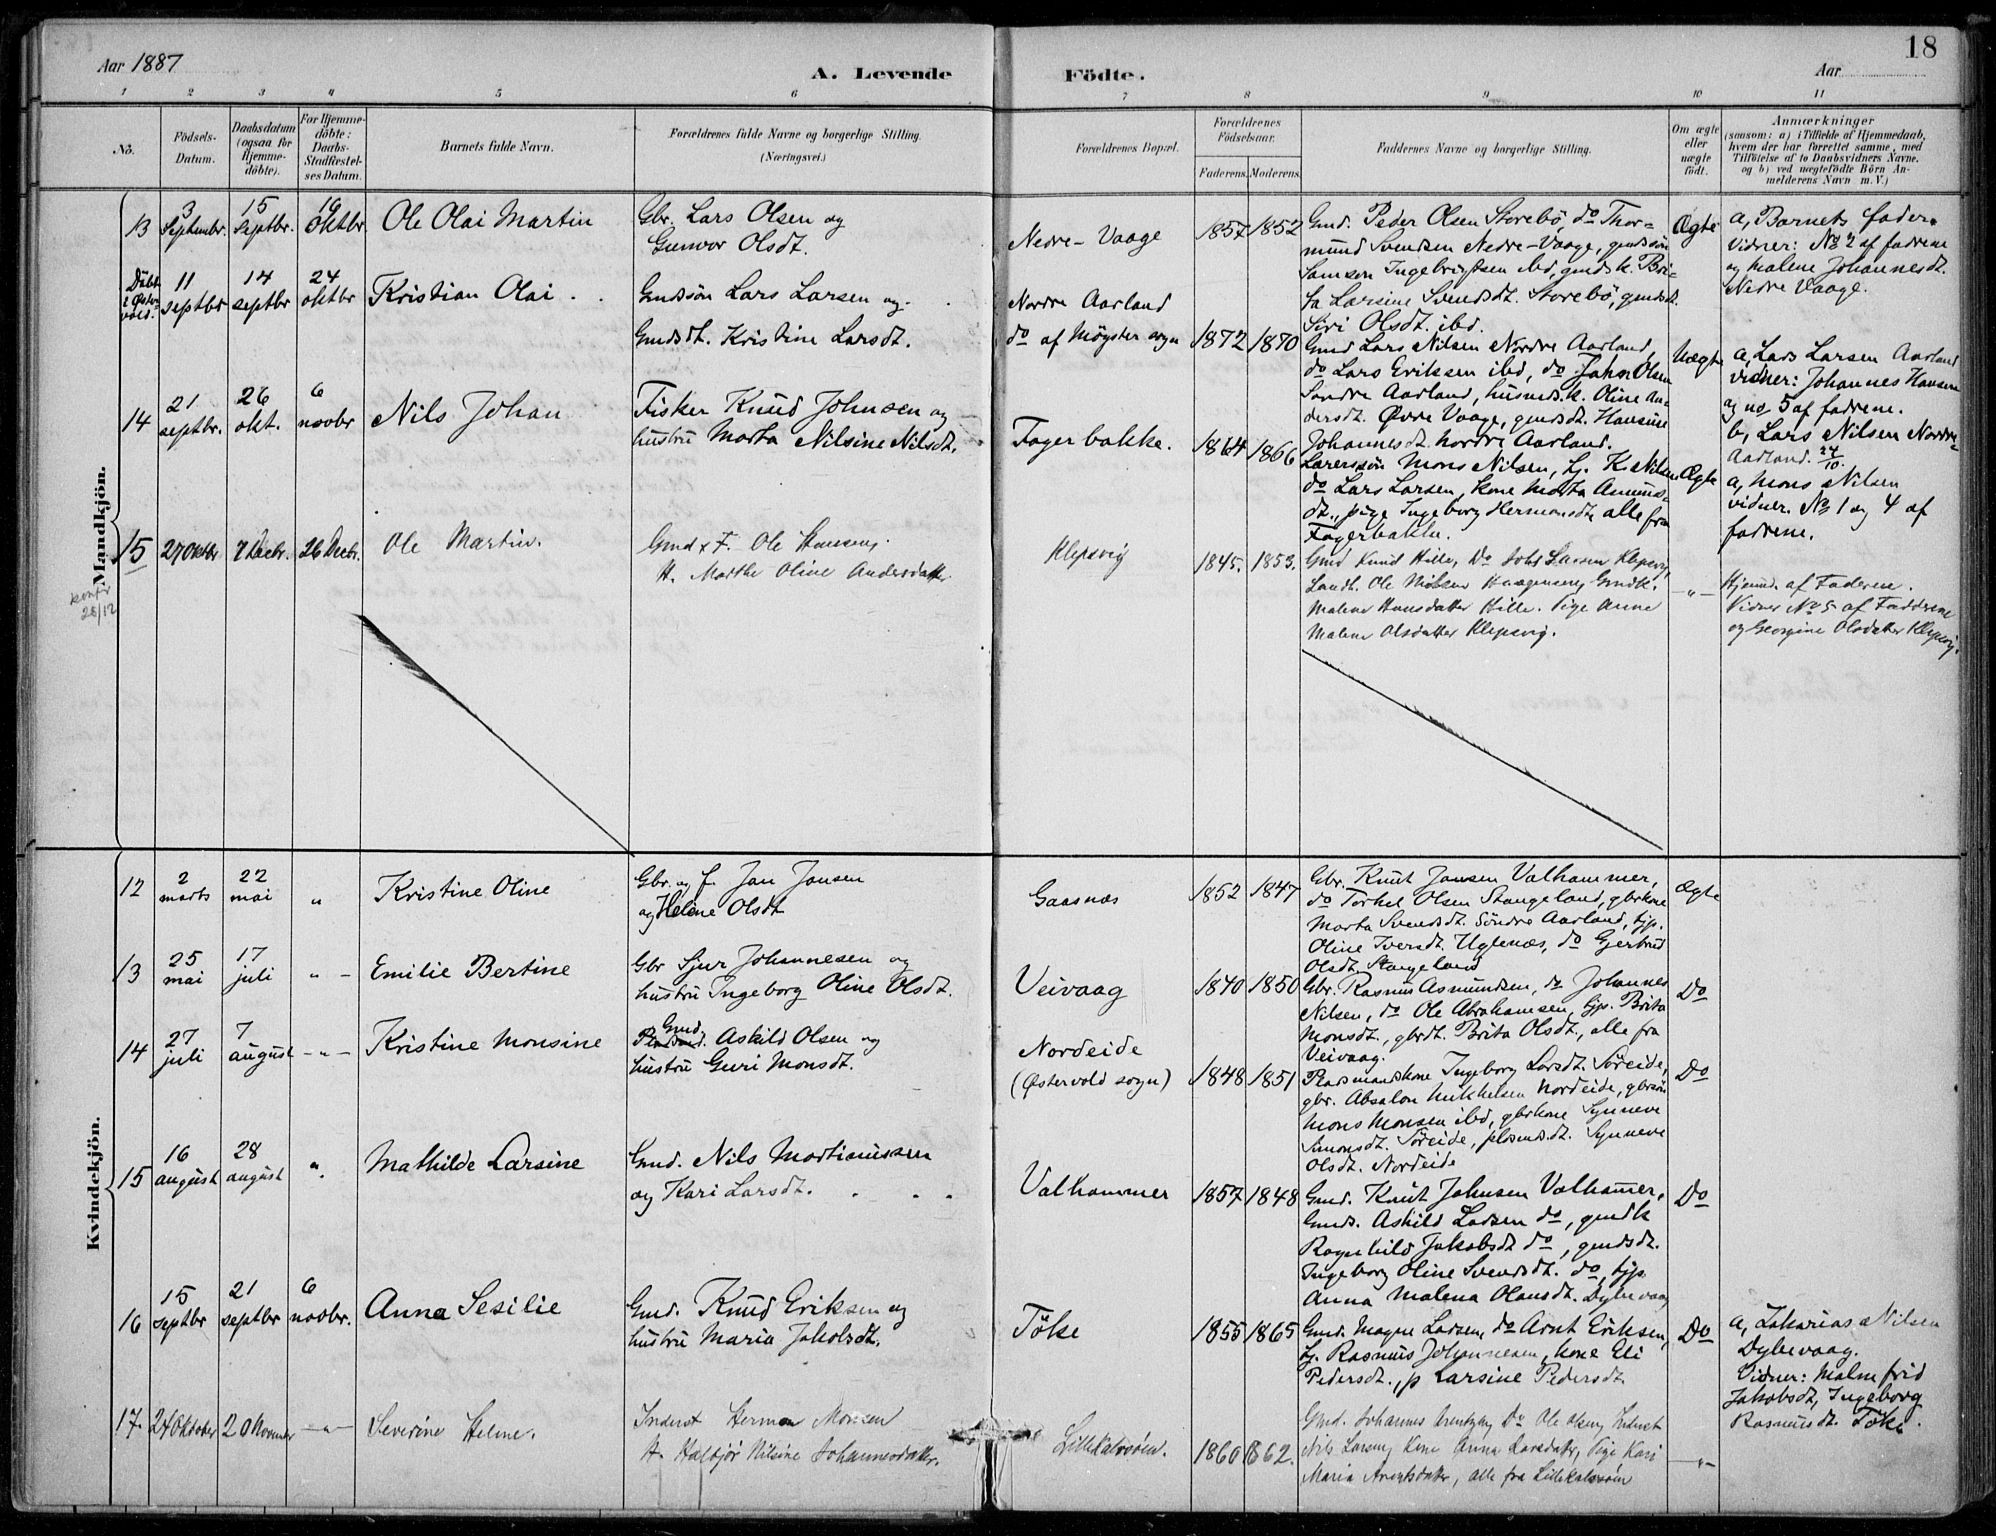 Aar 1887
A. Levende Födte.
Aar
18
1 2 3 4 5 6 7 8 9 10 11
No.
Födsels-Datum.
Daabsdatum (ogsaa for Hjemme-döbte).
For Hjemme-döbte: Daabs-Stadfæstel-ses Datum.
Barnets fulde Navn.
Forældrenes fulde Navne og borgerlige Stilling. (Næringsvei.)
Forældrenes Bopæl.
Forældrenes Födselsaar.
Faderens. Moderens.
Faddernes Navne og borgerlige Stilling.
Om ægte eller uægte födt.
Anmærkninger
(saasom: a) i Tilfælde af Hjemmedaab, hvem der har forrettet samme, med Tilföielse af to Daabsvidners Navne, og b) ved uægtefödte Börn An-melderens Navn m.V.)
Mandkjön.
13
3 Septembr.
15 Septbr.
16 oktbr
Ole Olai Martin
Gbr. Lars Olsen og
Gunvor Olsdt.
Nedre-Vaage
1857 1852
Gmd. Peder Olsen Storebö, do Thor-
mund Svendsen Nedre-Vaage, gmdssön
Samson Ingebrigtsen ibd, gmdsk. Bri-
ta Larsine Svendsdt. Storebö, gmdsdt.
Siri Olsdt. ibd.
Ægte
a, Barnets fader.
Vidner: No 2 af fadrene
og Malene Johannesdt.
Nedre Vaage.
Döbt i Øster vold.
11 septbr
14 septbr
24 oktbr
Kristian Olai
Gmdssön Lars Larsen og
Gmdsdt. Kristine Larsdt.
Nordre Aarland
do af Møgster sogn
1872 1870
Gmd Lars Nilsen Nordre Aarland,
do Lars Eriksen ibd, do John Olsen
Söndre Aarland, husmdsk. Oline An-
dersdt. Øvre Vaage, gmdsdt. Hansine
Johannesdt. nordre Aarland.
Uægte
a, Lars Larsen Aarland
vidner: Johannes Hansen
og no 5 af fadrene.
b, Lars Nilsen Nordre
Aarland. 24/10.
14
21 septbr.
26 okt.
6 novbr
Nils Johan
Fisker Knud Johnsen og
hustru Marta Nilsine Nilsdt.
Fagerbakke.
1864 1866
Lærerssön Mons Nilsen, Lj. K. Nilsen
do Lars Larsen, kone Marta Amuns-
dt., pige Ingeborg Hermansdt, alle fra
Fagerbakke.
Ægte
a, Mons Nilsen
vidner. No 1 og 4 af
fadrene.
15
konfr 28/12
27 Oktbr
7 Decbr.
26 Decbr.
Ole Martin.
Gmd & F. Ole Hansen,
H. Marthe Oline Andersdatter
Klepsvig
1845. 1853.
Gmd Knud Hille, Do Johs Larsen Klepsvig,
Landh. Ole Nilsen Haagensen, Gmdk.
Malene Hansdatter Hille. Pige Anne
Malene Olsdatter Klepsvig.
-"-
Hjemd. af Faderen.
Vidner No 5 af Fadderne
og Georgine Olsdatter Klepsvig.
Kvindekjön.
12
2 marts
22 mai
"
Kristine Oline
Gbr. og f. Jan Jansen
og Helene Olsdt
Gaasnæs
1852 1847
Gbr. Knut Jansen Valhammer,
do Torkel Olsen Stangeland, gbrkone
Marta Svendsdt. Söndre Aarland, tjp.
Oline Iversdt. Uglenæs, do Gjertrud
Olsdt. Stangeland
Ægte
13
25 mai
17 juli
"-
Emilie Bertine
Gbr Sjur Johannesen og
hustru Ingeborg Oline Olsdt.
Veivaag
1840 1850
Gbr. Rasmus Asmundsen, do Johannes
Nilsen, do Ole Abrahamsen, tjp. Brita
Monsdt., gbrdt. Brita Olsdt., alle fra
Veivaag.
Do
14
27 juli
7 august
-"-
Kristine Monsine
Gmd. Askild Olsen og
hustru Guri Monsdt.
Nordeide
(Østervold sogn)
1848 1851
Plasmandskone Ingeborg Larsdt. Söreide,
gbr. Absalon Mikkelsen Nordeide, gbrsön
Mons Monsen ibd, gbrkone Synneve
Simonsdt. Söreide, plsmdsdt. Synneve
Olsdt. Nordeide
Do
15
16 august
28 august
"
Mathilde Larsine
Gmd. Nils Martinussen
og Kari Larsdt.
Valhammer
1857 1848
Gmd. Knut Johnsen Valhamer,
Gmds. Askild Larsen do, gmdk
Ragnhild Jakobsdt do, gmdsdt.
Ingeborg Oline Svendsdt. do, tjp
Anna Malena Olausdt. Dybevaag
Do
16
15 septbr
21 septbr
6 novbr.
Anna Sesilie
Gmd. Knud Eriksen og
hustru Maria Jakobsdt.
Töke
1855 1865
Gmd. Magne Larsen, do Arnt Eriksen,
Lj. Rasmus Johannesen, kone Eli
Pedersdt., p Larsine Pedersdt
Do
a, Zakarias Nilsen
Dybevaag.
Vidner: Malmfrid
Jakobsdt, Ingeborg
Rasmusdt. Töke.
17.
24 Oktober
20 November
-"-
Severine Helene.
Inderst Herman Monsen
H. Halbjör Nilsine Johannesdatter.
Lillekalvsöen.
1860 1862.
Gmd. Johannes Arentzen, Do Ole Olsen, Inderst
Nils Larsen, Kone Anna Larsdatter, Pige Kari
Maria Arentsdatter, alle fra Lillekalvsöen
-"-